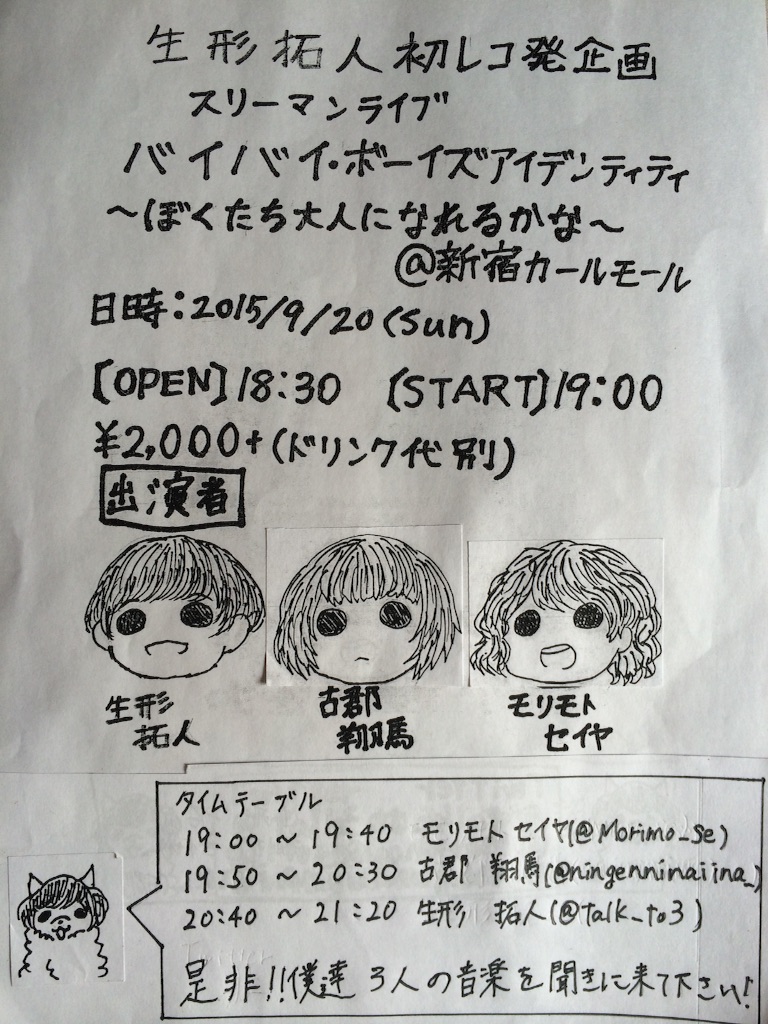 生形拓人初レコ発企画
スリーマンライブ
バイバイ・ボーイズアイデンティティ
～ぼくたち大人になれるかな～
@新宿カールモール
日時:2015/9/20(Sun)
【OPEN】18:30 【START】19:00
¥2,000+(ドリンク代別)
出演者
生形
拓人
古郡
翔馬
モリモト
セイヤ
タイムテーブル
19:00 ～ 19:40 モリモト セイヤ(@Morimo_Se)
19:50 ～ 20:30 古郡 翔馬(@ningenninaiina_)
20:40 ～ 21:20 生形 拓人(@talk_to3)
是非!!僕達 3人の音楽を聞きに来て下さい!